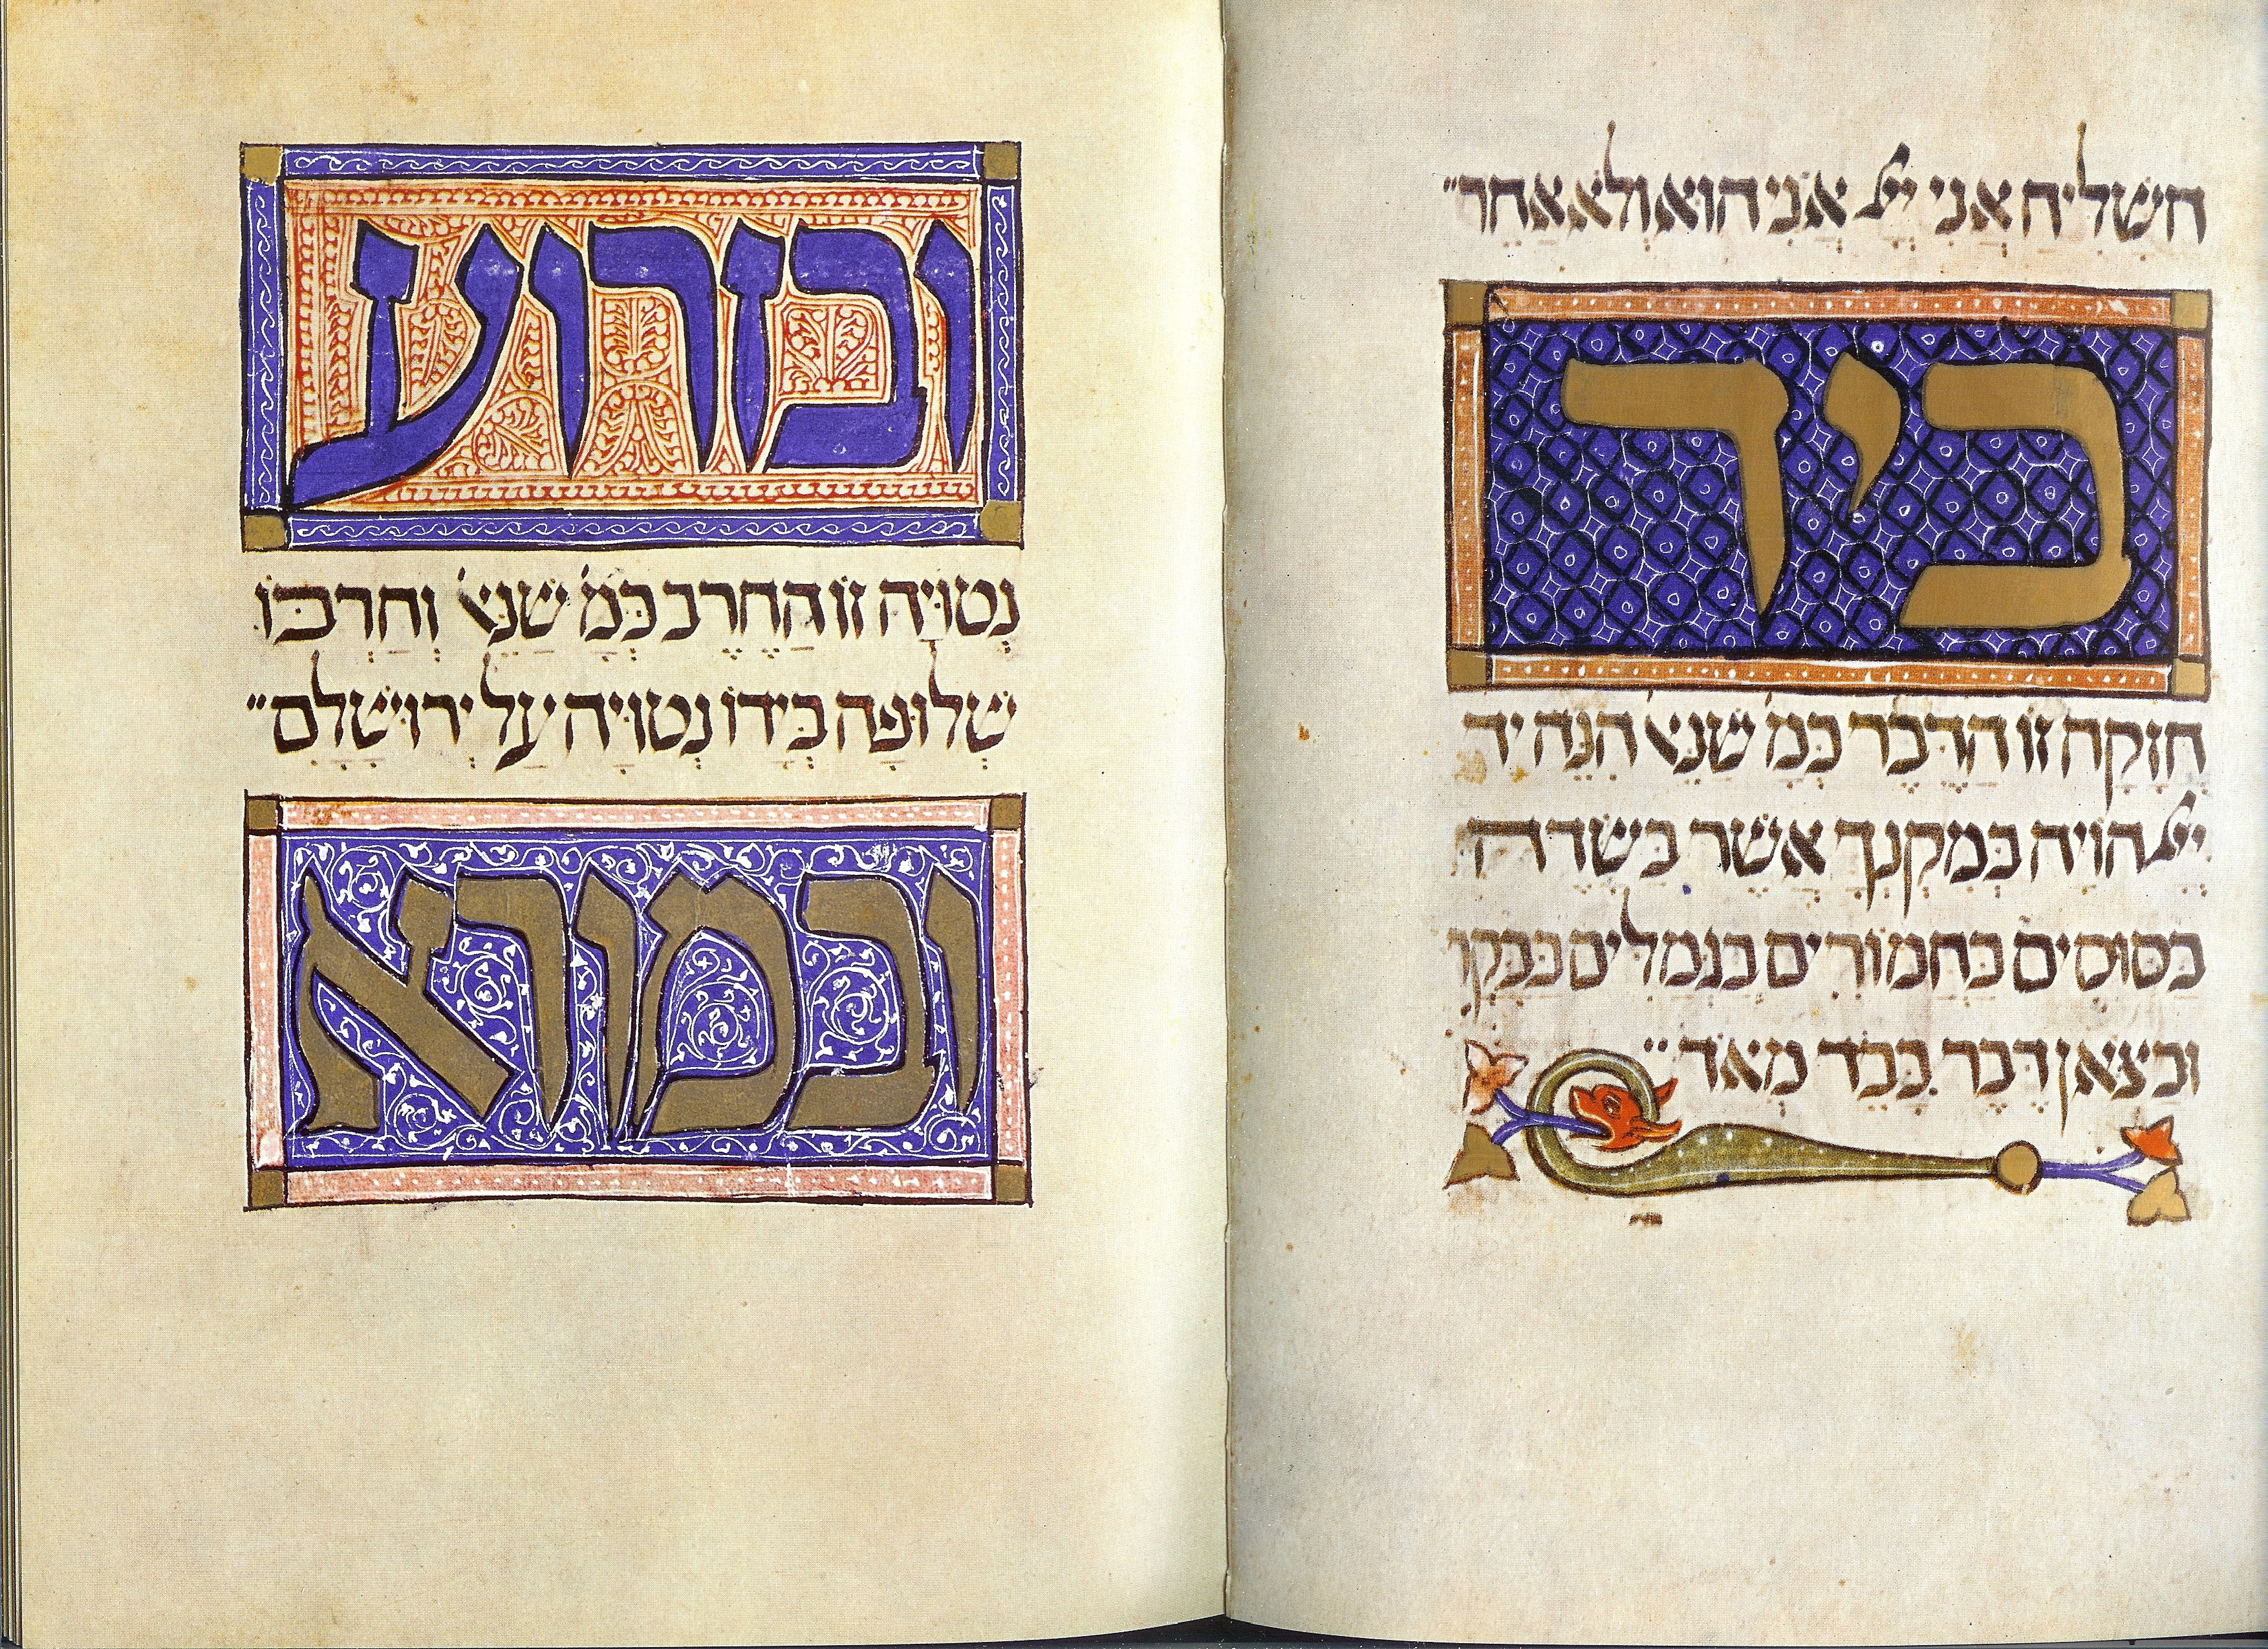 השליח אני יי אני הוא ולא אחר״
ביד
חזקה זו הדבר כמ׳ שנא׳ הנה יד
יי הויה במקנך אשר בשדה
בסוסים בחמורים בגמלים בבקר
ובצאן דבר כבד מאד״
ובזרוע
נטויה זו החרב כמ׳ שנא׳ וחרבו
שלופה בידו נטויה על ירושלם״
ובמורא